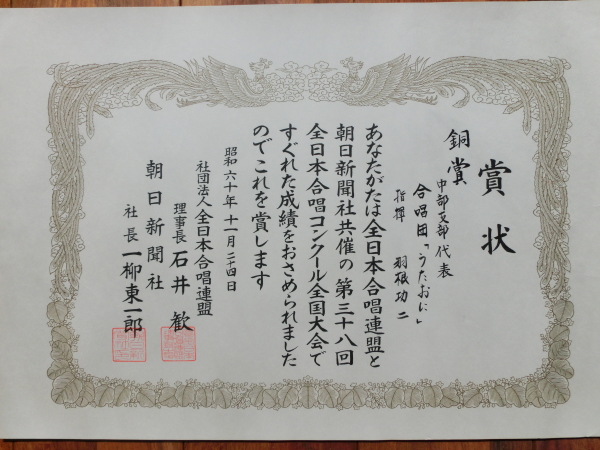 賞状
銅賞
中部支部代表
合唱団「うたおに」
指揮 羽根功二
あなたがたは全日本合唱連盟と
朝日新聞社共催の第三十八回
全日本合唱コンクール全国大会で
すぐれた成績をおさめられました
のでこれを賞します
昭和六十年十一月二十四日
社団法人全日本合唱連盟
理事長 石井歓
朝日新聞社
社長 一柳東一郎